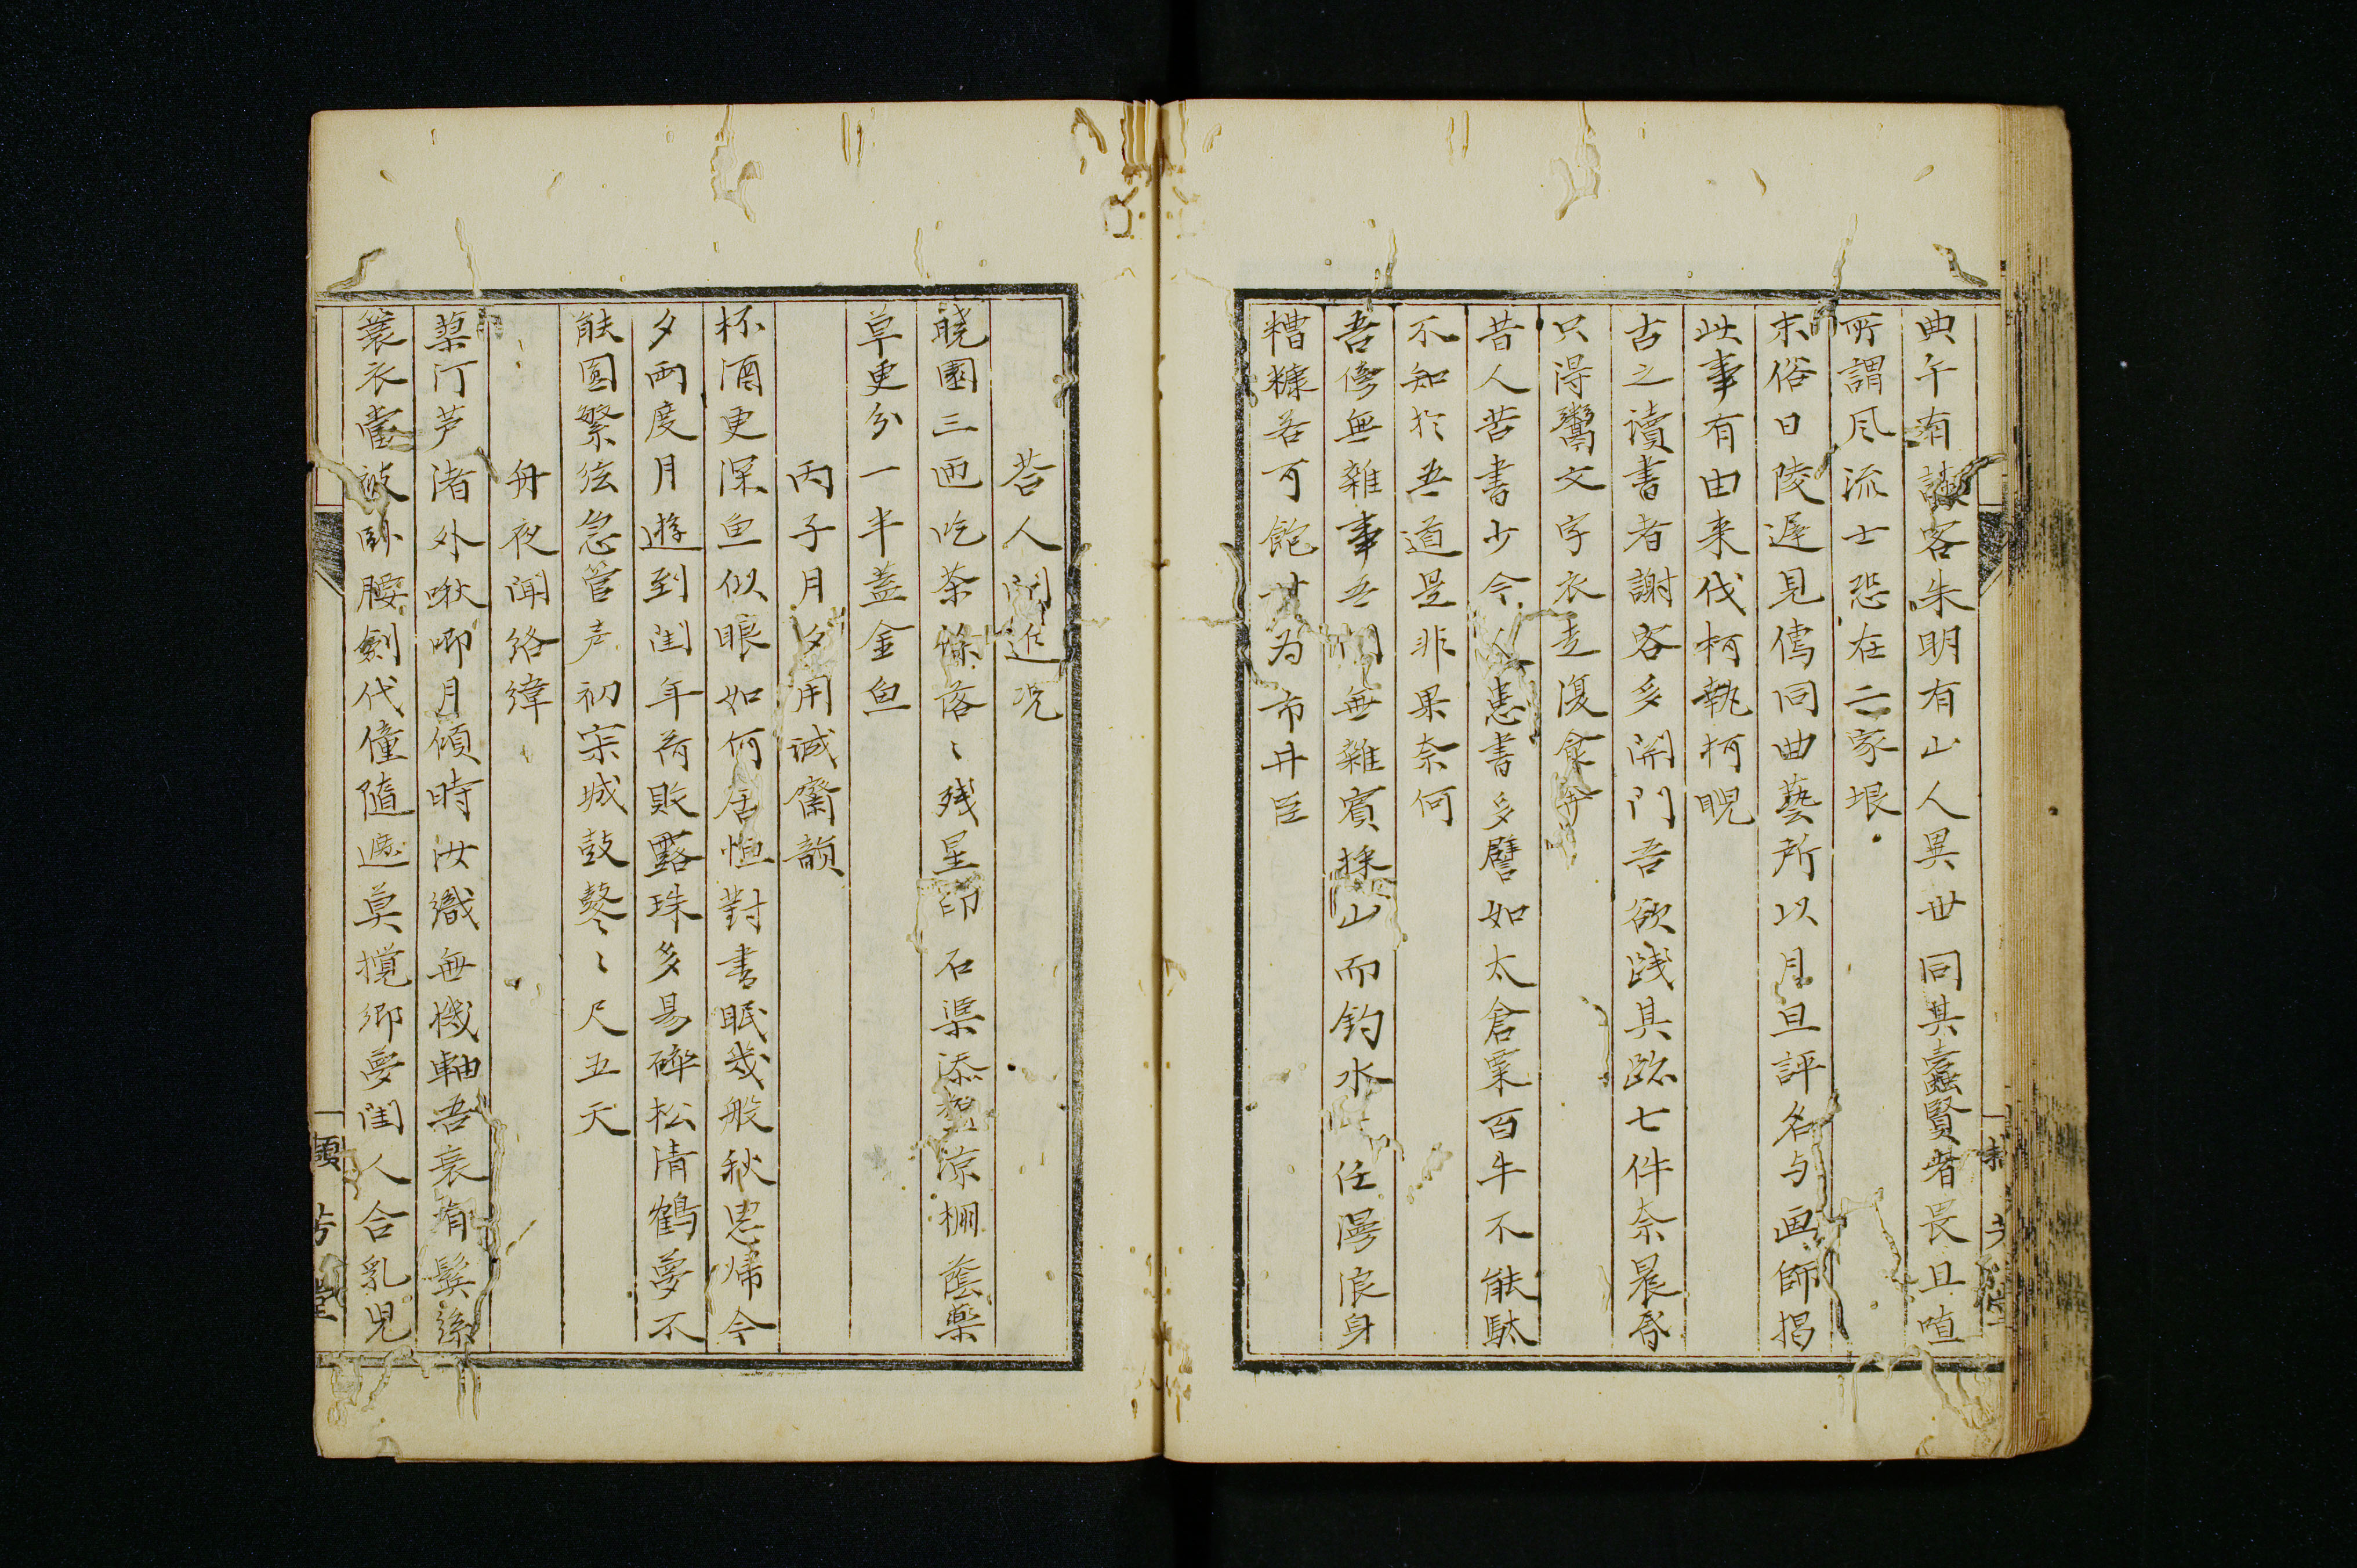 典午有譏客朱明有山人異世同其蠹賢者長且喧
所謂风流士恐在二家垠
末俗日陵遅見儒同曲藝所以月旦評名与画師掲
此事有由来伐柯執柯睨
古之讀書者謝客多閉門吾欲践其跡七件奈晨昏
只得鬻文字衣走復食奔
昔人苦書少今人患書多譬如太倉粟百牛不能駄
不知於吾道是非果奈何
吾修無雜事吾門無雜賓採山而釣水任漫浪身
糟糠若可飽甘为市井臣
答人問近况
曉園三匝吃茶馀落〻残星印石渠添涼棚蔭藥
草更分一半盖金魚
丙子月夕用诚齋韻
杯酒更深魚似眼如何居恒對書眠幾般秋思帰今
夕兩度月遊到閏年荷敗露珠多易碎松清鶴夢不
能圆繁弦急管声初寂城鼓鼕〻尺五天
舟夜闻络緯
蓼汀芦渚外啾唧月傾時汝織無機軸吾衰有鬓絲
簑衣當被卧腰劍代僮隨遮莫攪鄉夢閨人合乳児